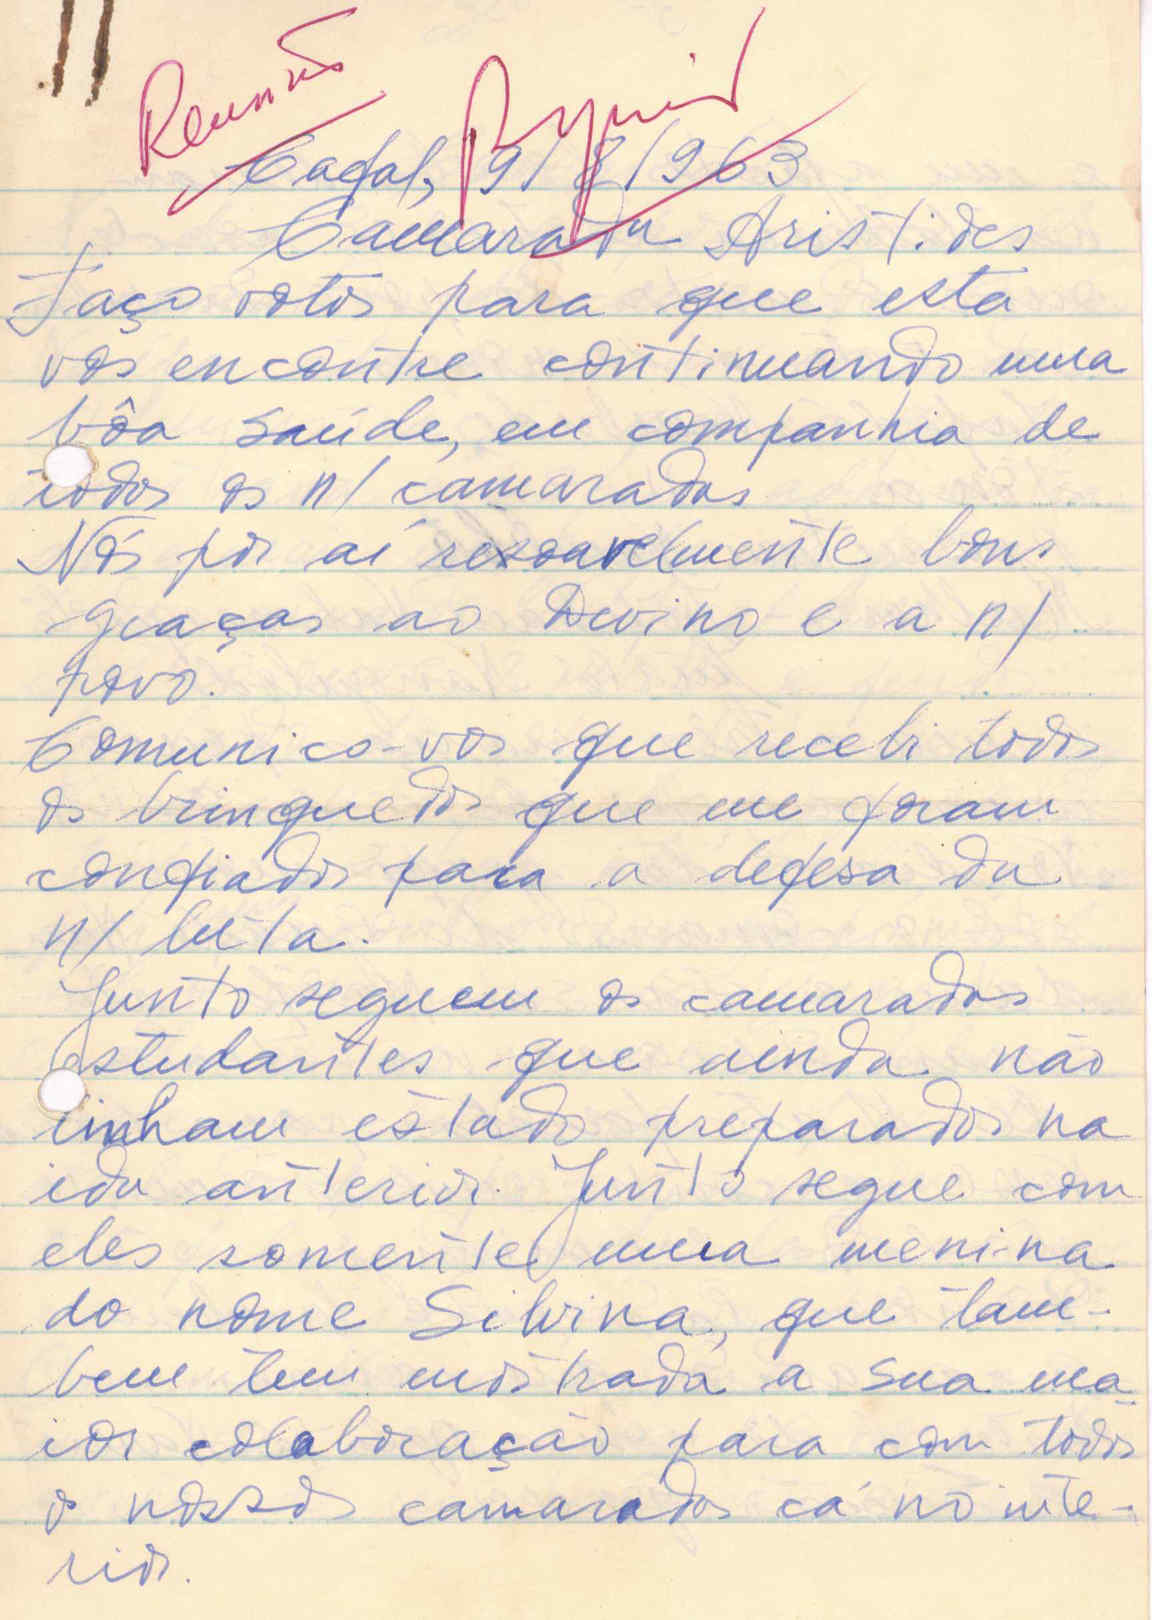 Reunião
Cafal, 9/8/963
Camarada Aristides
Faço votos para que esta
vos encontre continuando uma
bôa saúde, em companhia de
todos os n/ camaradas
Nós por aí resoavelmente bons
graças ao Devino e a n/
povo.
Comunico-vos que recebi todos
os brinquedos que me foram
confiados para a defesa da
n/ luta.
Junto seguem os camaradas
estudantes que ainda não
tinham estado preparados na
ida anterior. Junto segue com
eles somente uma menina
do nome Silvina, que tam-
bem tem mostrada a sua ma-
ior colaboração para com todos
os nossos camarados cá no inte-
rior.